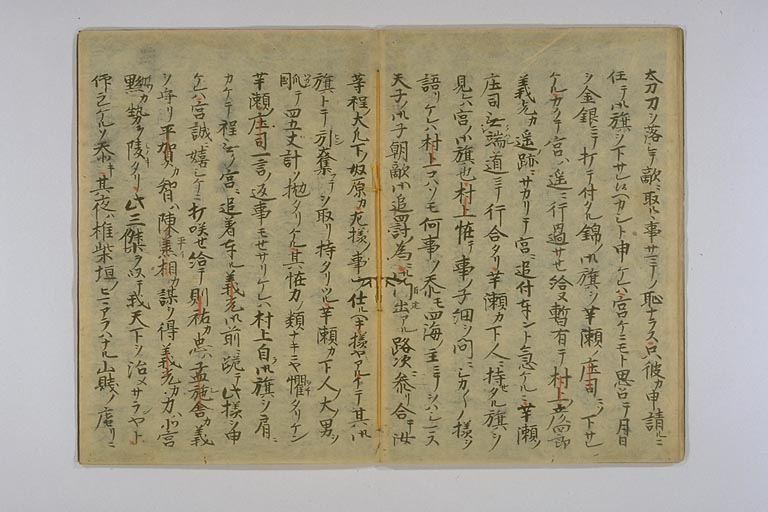 太刀ヲ落シテ敵ニ取ルヽ事サミテノ恥ナラス只彼カ申請ルニ
任テ御旗ヲ下サレ候ヘカシト申ケレハ宮ケニモト思召テ月日
ヲ金銀ニテ打テ付タル錦ノ御旗ヲ芋瀬ノ庄司ニソ下サレ
ケルカクテ宮ハ遥ニ行過サセ給ヌ暫有テ村上彦四郎
義光カ遥跡ニサカリテ宮ニ追付奉ント急ケルニ芋瀬ノ
庄司無端道ニテ行合タリ芋瀬カ下人ニ持セタル旗ヲ
見レハ宮ノ御旗也村上恠テ事ノ子細ヲ問ニシカ〳〵ノ様ヲ
語リケレハ村上コハソモ何事ソ忝モ四海ノ主ニテヲハシマス
天子ノ御子朝敵御追罸ノ為ニ御門出アル路次ニ参リ合テ汝
等程ノ大凡下ノ奴原カ左様ノ事ヲ仕ルヘキ様ヤアルトテ其御
旗ヲ引奪テ取リ持タリツル芋瀬カ下人ノ大ノ男ヲ
掴テ四五丈計ソ抛タリケル其恠力ノ類ナキニヤ懼タリケン
芋瀬ノ庄司一言ノ返事モセサリケレハ村上自御旗ヲ肩ニ
カケテ程ナク宮ニ追着奉ル義光御前ニ跪テ此様ヲ申
ケレハ宮誠ニ嬉シケニ打咲セ給テ則祐カ忠ハ孟施舎カ義
ヲ守リ平賀カ智ハ陳丞相カ謀ヲ得義光カ力ハ北宮
黝カ勢ヲ陵タリ此三傑ヲ以テ我天下ヲ治メサランヤト
仰ラレケルソ忝キ其夜ハ椎柴垣ノヒマアラハナル山賎ノ庵リニ